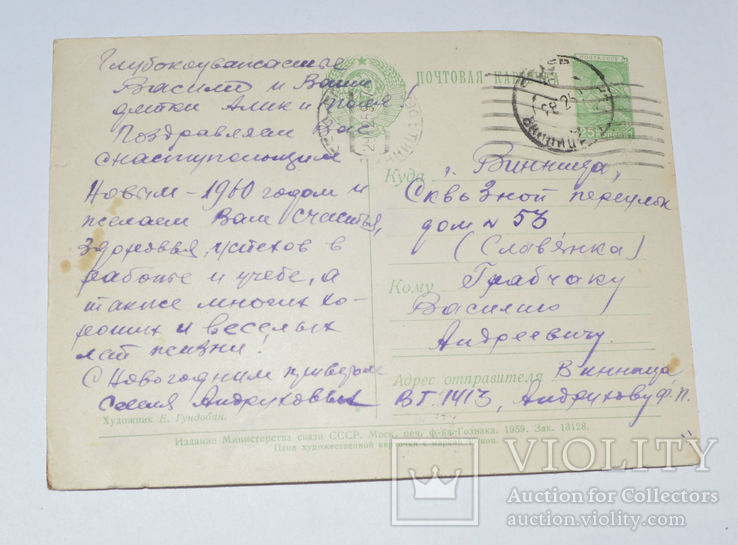 Глубокоуважаемые
Василий и Ваши
детки Алик и
Поздравляем Вас
с наступающим
Новым - 1960 годом и
желаем Вам счастья,
здоровья, успехов в
работе и учебе, а
также многих хо-
роших и веселых
лет жизни!
С Новогодним приветом
Семья Андруховых
Художник Е. Гундобин.
ПОЧТОВАЯ КАР
ПОЧТА СССР
Куда г. Винница,
Сквозной переулок
дом № 53
(Славянка)
Кому Грабчаку
Василию
Андреевичу.
Адрес отправителя Винница,
ВГ. 1413, Андрухову Ф. П.
Издание Министерства связи СССР. Моск. печ. ф-ка Гознака. 1959. Зак. 13128.
Цена художественной карточки с маркой коп.
VIOLITY
Auction for Collectors
auction.violity.com